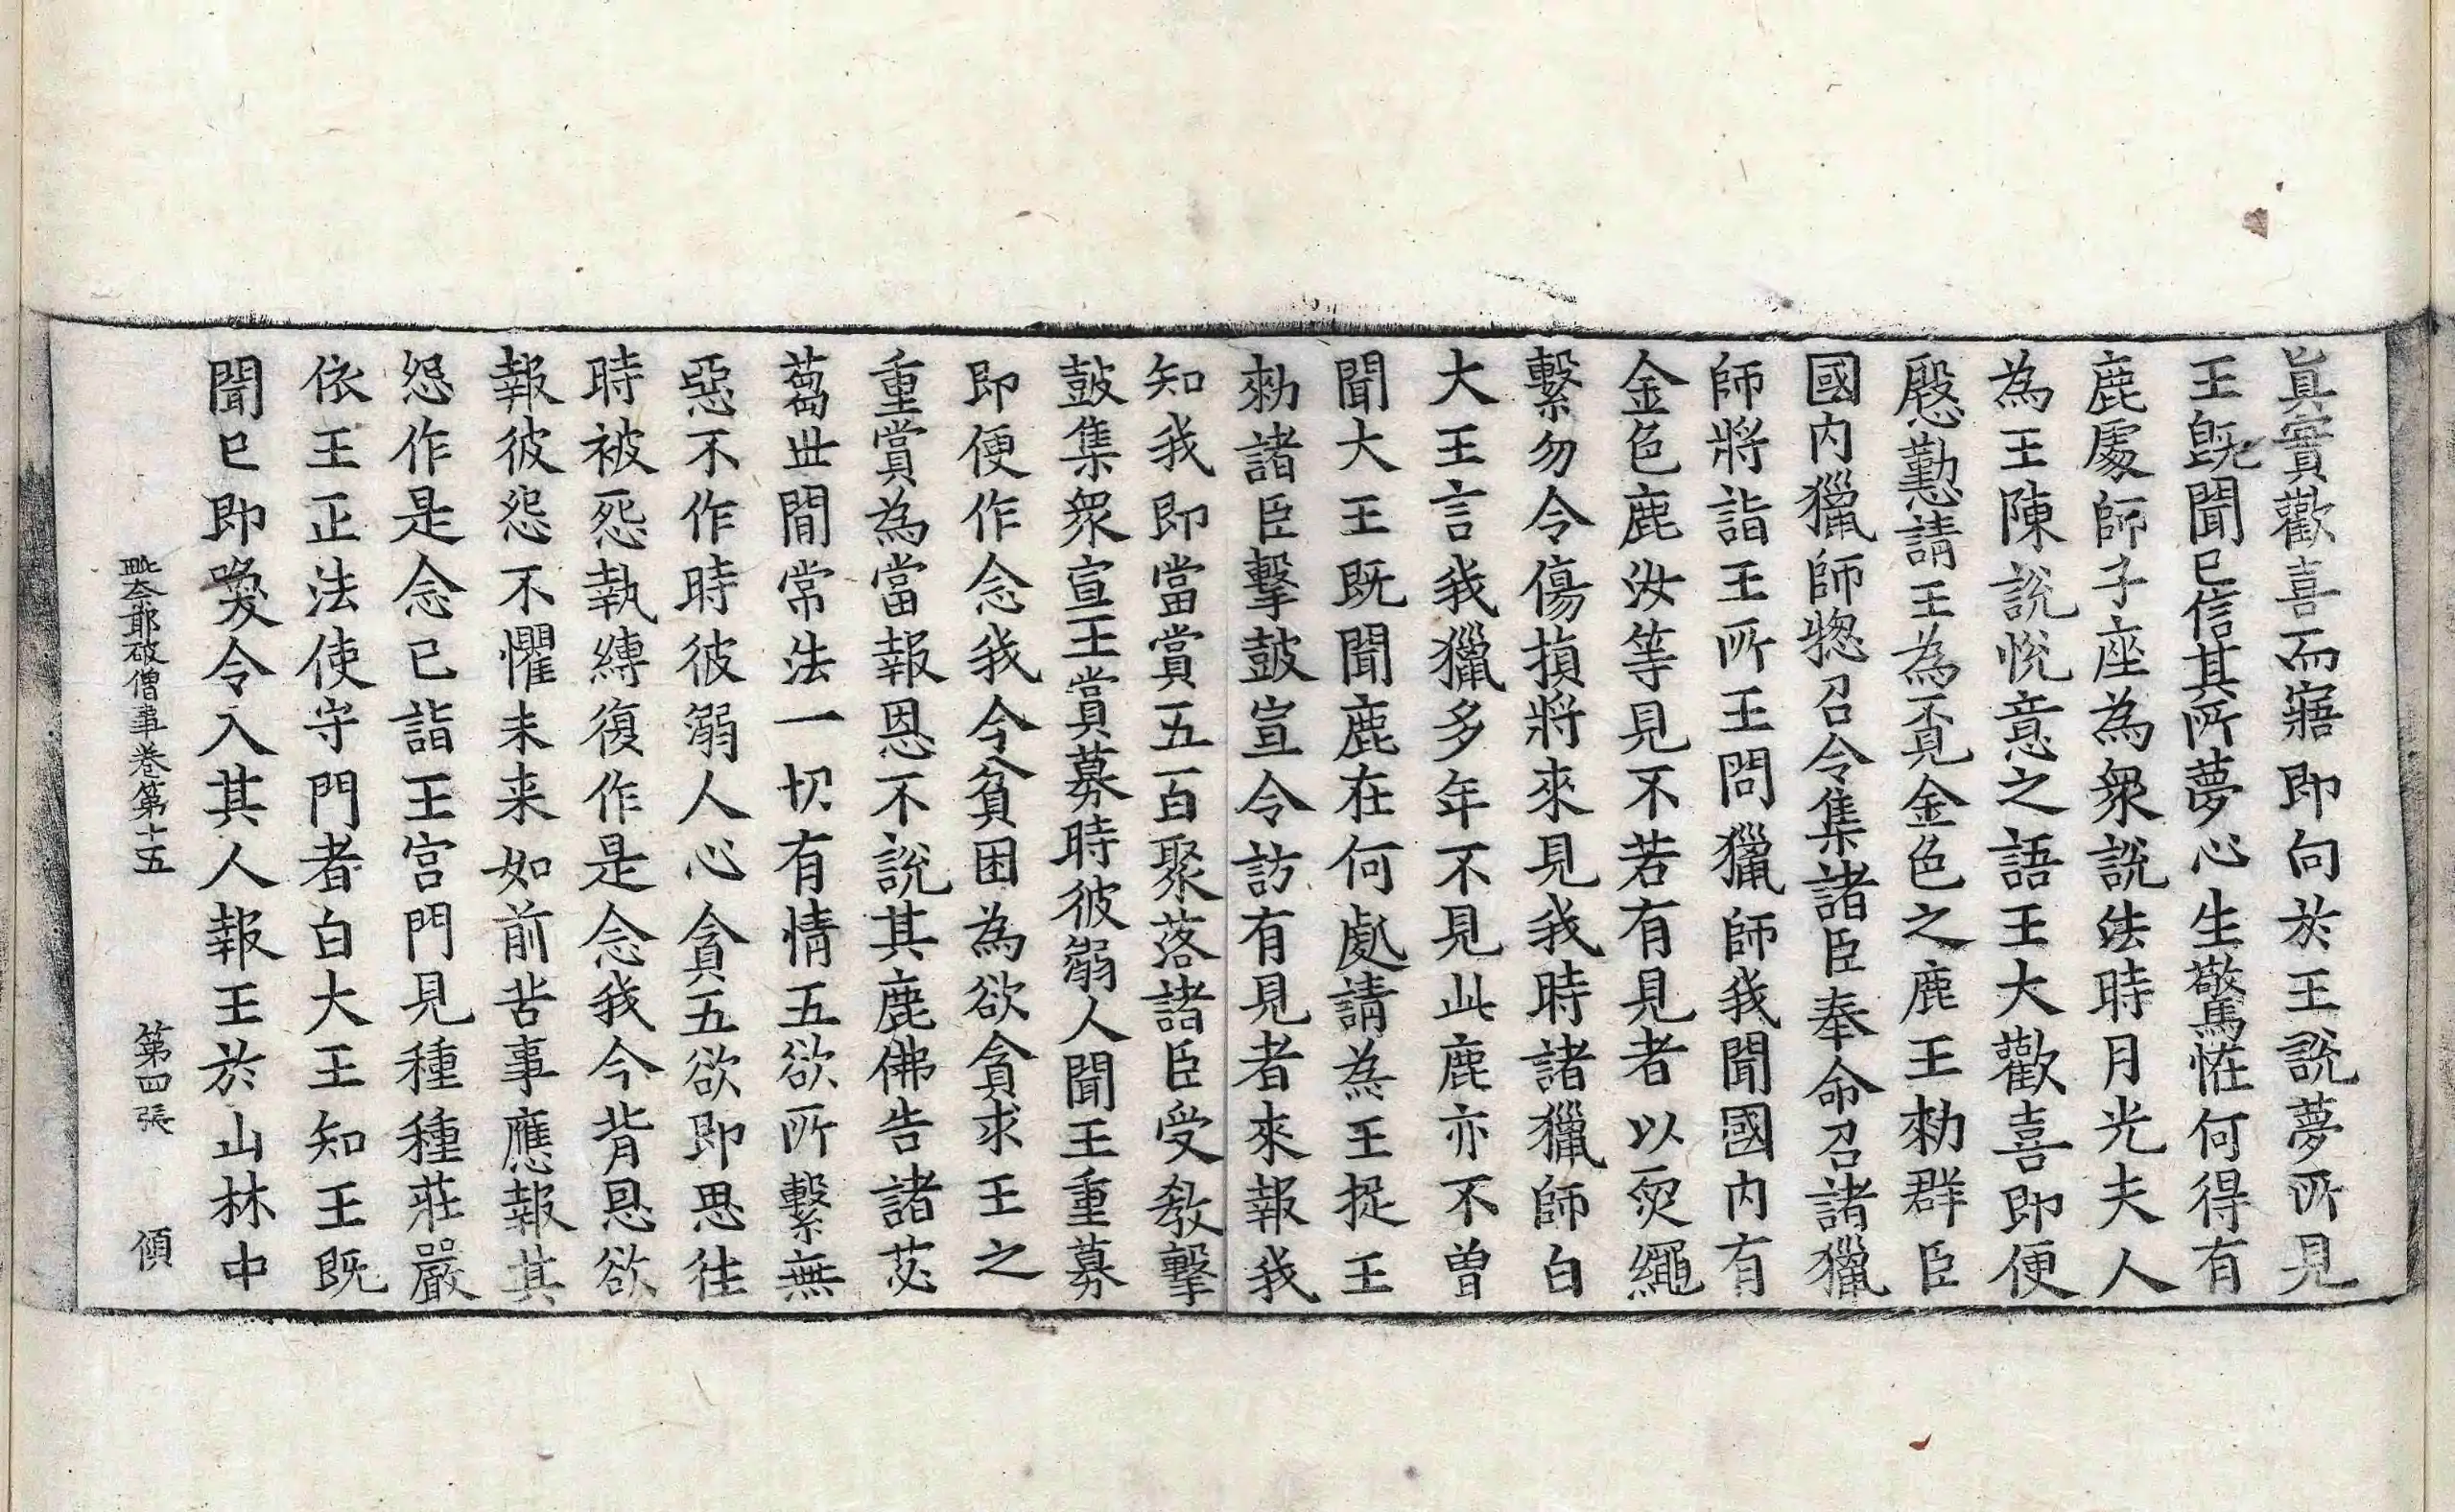 真實歡喜而寤即向於王說夢所見
王旣聞已信其所夢心生驚恠何得有
鹿處師子座為衆說法時月光夫人
為王陳說悅意之語王大歡喜即便
慇懃請王為覓金色之鹿王勑群臣
國內獵師惣召令集諸臣奉命召諸獵
師將詣王所王問獵師我聞國內有
金色鹿汝等見不若有見者以罥繩
繫勿令傷損將來見我時諸獵師白
大王言我獵多年不見此鹿亦不曾
聞大王旣聞鹿在何處請為王捉王
勑諸臣擊鼓宣令訪有見者來報我
知我即當賞五百聚落諸臣受教擊
鼓集衆宣王賞募時彼溺人聞王重募
即便作念我今貧困為欲貪求王之
重賞為當報恩不說其鹿佛告諸苾
蒭世間常法一切有情五欲所繫無
惡不作時彼溺人心貪五欲即思往
時被怨執縛復作是念我今背恩欲
報彼怨不懼未来如前苦事應報其
怨作是念已詣王宮門見種種莊嚴
依王正法使守門者白大王知王旣
聞已即喚令入其人報王於山林中
毗奈耶破僧事卷第十五 第四張 傾